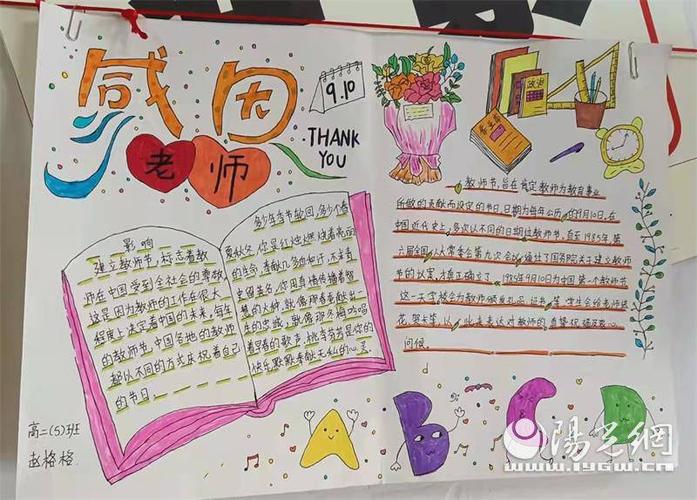 感恩
老师
9.10
THANK
YOU
影响
建立教师节,标志着教
师在中国受到全社会的尊敬
这是因为教师的工作在很大
程度上决定着中国的未来,每年
的教师节,中国各地的教师
都以不同的方式庆祝着自己
的节日.
多少年季节轮回,多少个春
夏秋冬,你是红烛燃烧着亮丽
的生命,奉献几多血和汗,不求青
史留英名,你用真情传播着智
慧的火种,就像那春蚕献出一
生的忠诚,就像那冬梅吟唱
着早春的歌声.桃李芬芳是你的
快乐默默奉献无私的心灵.
政治
教师节,旨在肯定教师为教育事业
所做的贡献而设定的节日,日期为每年公历的9月10日,在
中国近代史上,多次以不同的日期过教师节,直至1985年,第
六届全国人大常委会第九次会议通过了国务院关于建立教师
节的议案,才真正确立了,1985年9月10日为中国第一个教师节
这一天学校会为教师颁发礼品、证书等,学生会给老师送
花、贺卡等,以此来表达对教师的尊敬祝福及衷心
问候.
高二(5)班
赵格格
A B C D
陽光網
www.iygw.cn